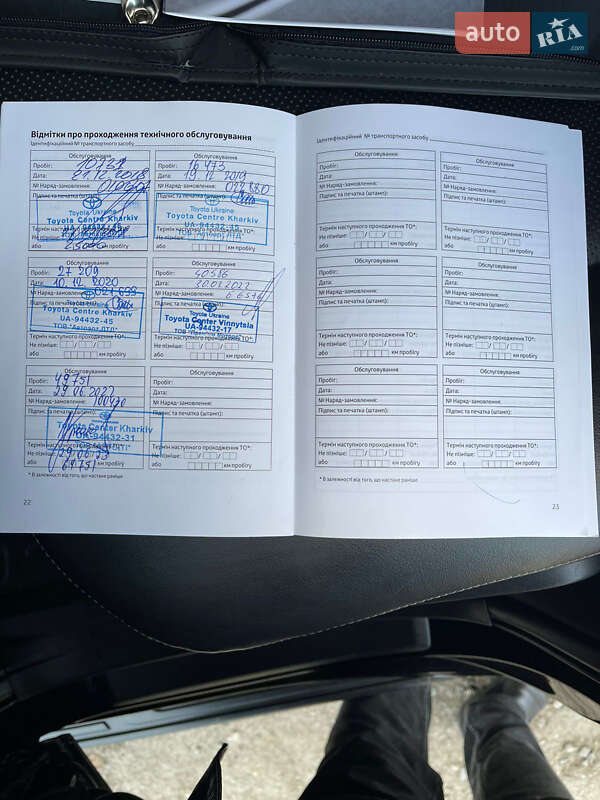 auto RIA.com
Відмітки про проходження технічного обслуговування
Ідентифікаційний № транспортного засобу
Обслуговування
Пробіг: 10731
Дата: 21.12.2018
№ Наряд-замовлення:
Підпис та печатка (штамп):
Toyota Ukraine
Toyota Centre Kharkiv
UA-94432-45
Термін наступного проходження ТО*:
Не пізніше:
або км пробігу
Обслуговування
Пробіг: 16 473
Дата: 19.12.2019
№ Наряд-замовлення: 022880
Підпис та печатка (штамп):
Toyota Ukraine
Toyota Centre Kharkiv
UA-94432-45
Термін наступного проходження ТО*:
Не пізніше:
або км пробігу
Обслуговування
Пробіг: 27 209
Дата: 10.12.2020
№ Наряд-замовлення: 027699
Підпис та печатка (штамп):
Toyota Ukraine
Toyota Centre Kharkiv
UA-94432-45
ТОВ "Автоарт ЛТД"
Термін наступного проходження ТО*:
Не пізніше:
або км пробігу
Обслуговування
Пробіг: 40586
Дата: 20.01.2022
№ Наряд-замовлення:
Підпис та печатка (штамп):
Toyota Center Vinnytsia
UA-94432-17
Термін наступного проходження ТО*:
Не пізніше:
або км пробігу
Обслуговування
Пробіг: 49751
Дата: 29.06.2022
№ Наряд-замовлення:
Підпис та печатка (штамп):
Toyota Center Kharkiv
UA-94432-31
Термін наступного проходження ТО*:
Не пізніше: 29.06.23
або км пробігу
Обслуговування
Пробіг:
Дата:
№ Наряд-замовлення:
Підпис та печатка (штамп):
Термін наступного проходження ТО*:
Не пізніше:
або км пробігу
* В залежності від того, що настане раніше
22
Ідентифікаційний № транспортного засобу
Обслуговування
Пробіг:
Дата:
№ Наряд-замовлення:
Підпис та печатка (штамп):
Термін наступного проходження ТО*:
Не пізніше:
або км пробігу
Обслуговування
Пробіг:
Дата:
№ Наряд-замовлення:
Підпис та печатка (штамп):
Термін наступного проходження ТО*:
Не пізніше:
або км пробігу
Обслуговування
Пробіг:
Дата:
№ Наряд-замовлення:
Підпис та печатка (штамп):
Термін наступного проходження ТО*:
Не пізніше:
або км пробігу
Обслуговування
Пробіг:
Дата:
№ Наряд-замовлення:
Підпис та печатка (штамп):
Термін наступного проходження ТО*:
Не пізніше:
або км пробігу
Обслуговування
Пробіг:
Дата:
№ Наряд-замовлення:
Підпис та печатка (штамп):
Термін наступного проходження ТО*:
Не пізніше:
або км пробігу
Обслуговування
Пробіг:
Дата:
№ Наряд-замовлення:
Підпис та печатка (штамп):
Термін наступного проходження ТО*:
Не пізніше:
або км пробігу
* В залежності від того, що настане раніше
23